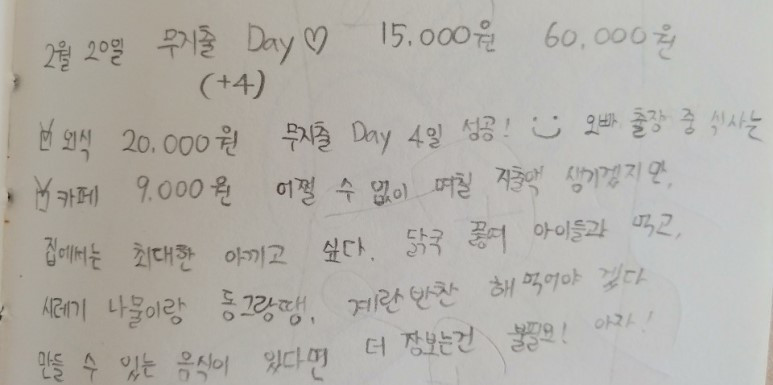 2월 20일 무지출 Day♡ 15.000원 60.000원
(+4)
외식 20.000원 무지출 Day 4일 성공! 오빠 출장 중 식사는
카페 9.000원 어쩔 수 없이 며칠 지출액 생기겠지만,
집에서는 최대한 아끼고 싶다. 닭국 끓여 아이들과 먹고,
시레기 나물이랑 동그랑땡, 계란반찬 해먹어야 겠다
만들 수 있는 음식이 있다면 더 장보는건 불필요! 아자!